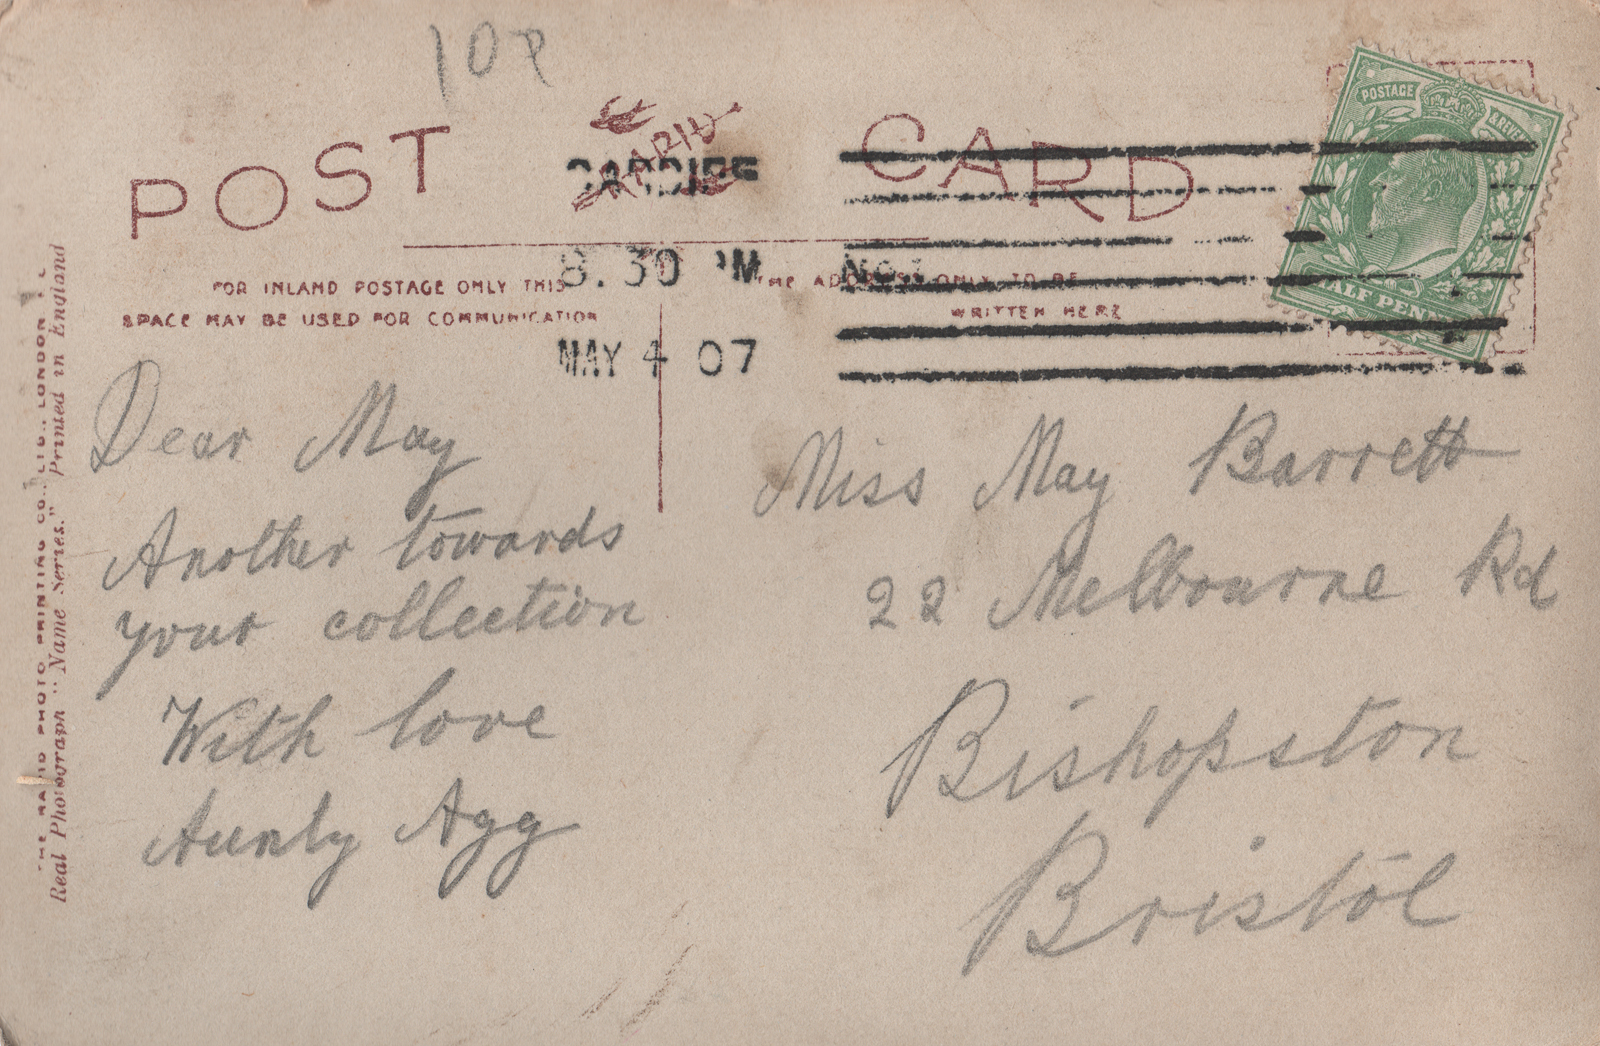 10P
POST CARD
RAPID
CARDIFF
8.30 PM
MAY 4 07
POSTAGE & REVENUE
HALF PENNY
FOR INLAND POSTAGE ONLY THIS
SPACE MAY BE USED FOR COMMUNICATION
THE ADDRESS ONLY TO BE
WRITTEN HERE
Dear May
Another towards
your collection
With love
Aunty Agg
Miss May Barrett
22 Melbourne Rd
Bishopston
Bristol
THE RAPID PHOTO PRINTING CO., LTD., LONDON
Real Photograph "Name Series." Printed in England